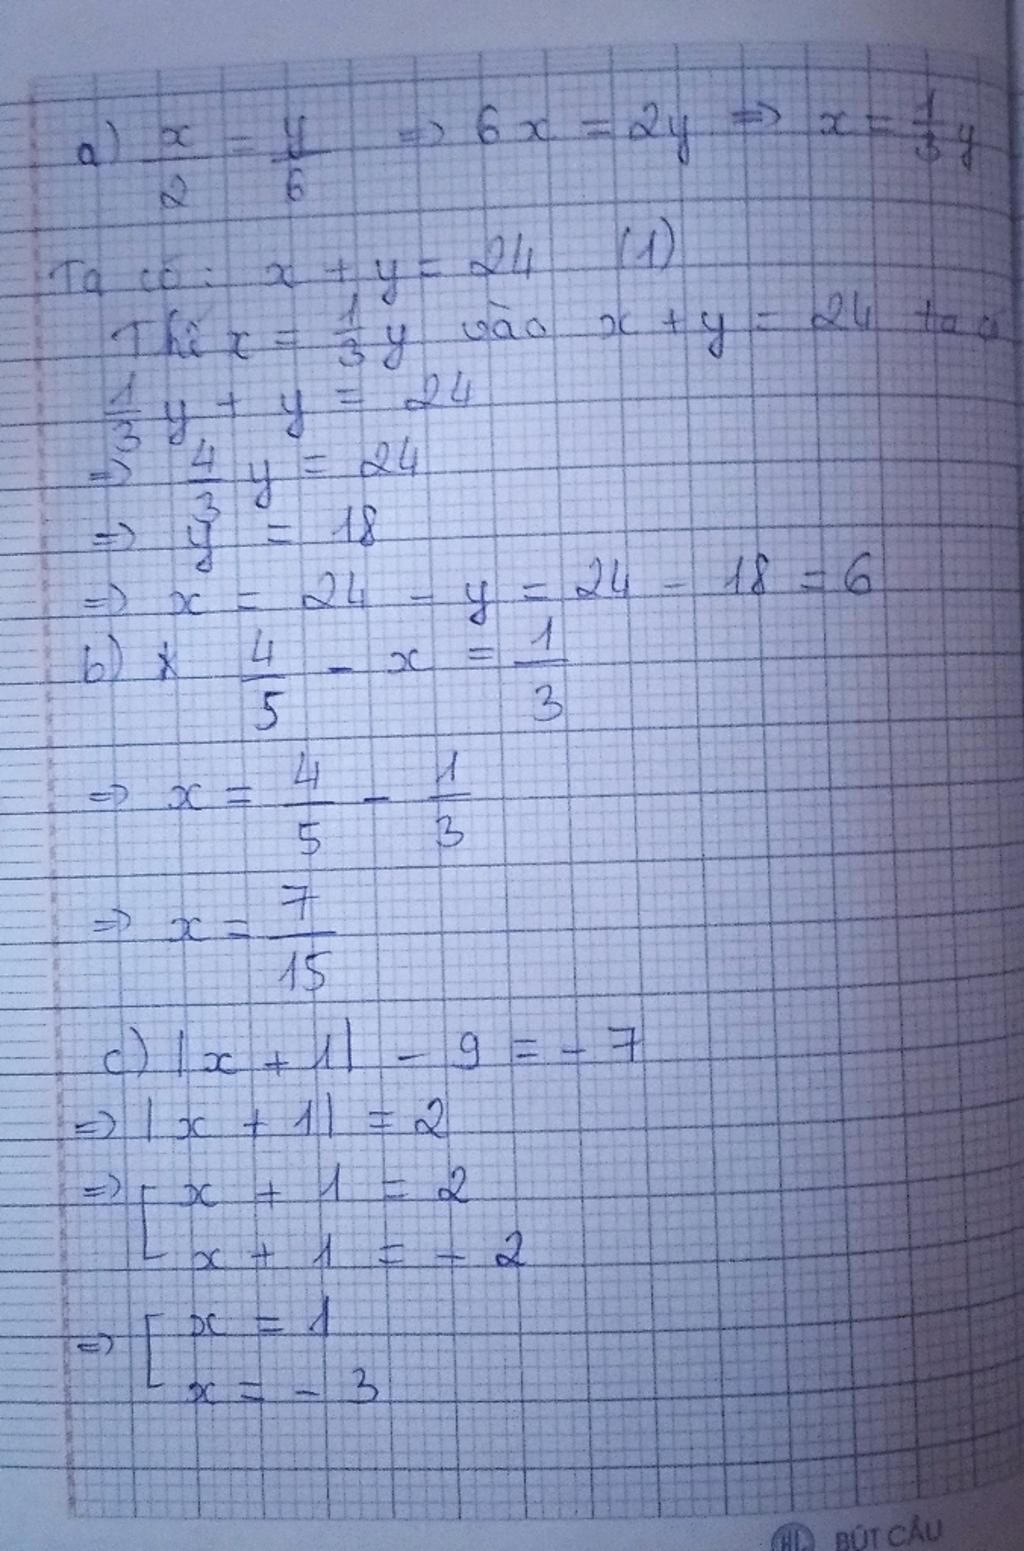 a) x/2 = y/6 => 6x = 2y => x = 1/3 y
Ta có: x + y = 24 (1)
Thế x = 1/3 y vào x + y = 24 ta có
1/3 y + y = 24
=> 4/3 y = 24
=> y = 18
=> x = 24 - y = 24 - 18 = 6
b) * 4/5 - x = 1/3
=> x = 4/5 - 1/3
=> x = 7/15
c) |x + 1| - 9 = -7
=> |x + 1| = 2
=> [ x + 1 = 2
x + 1 = -2
=> [ x = 1
x = -3
BÚT CẦU